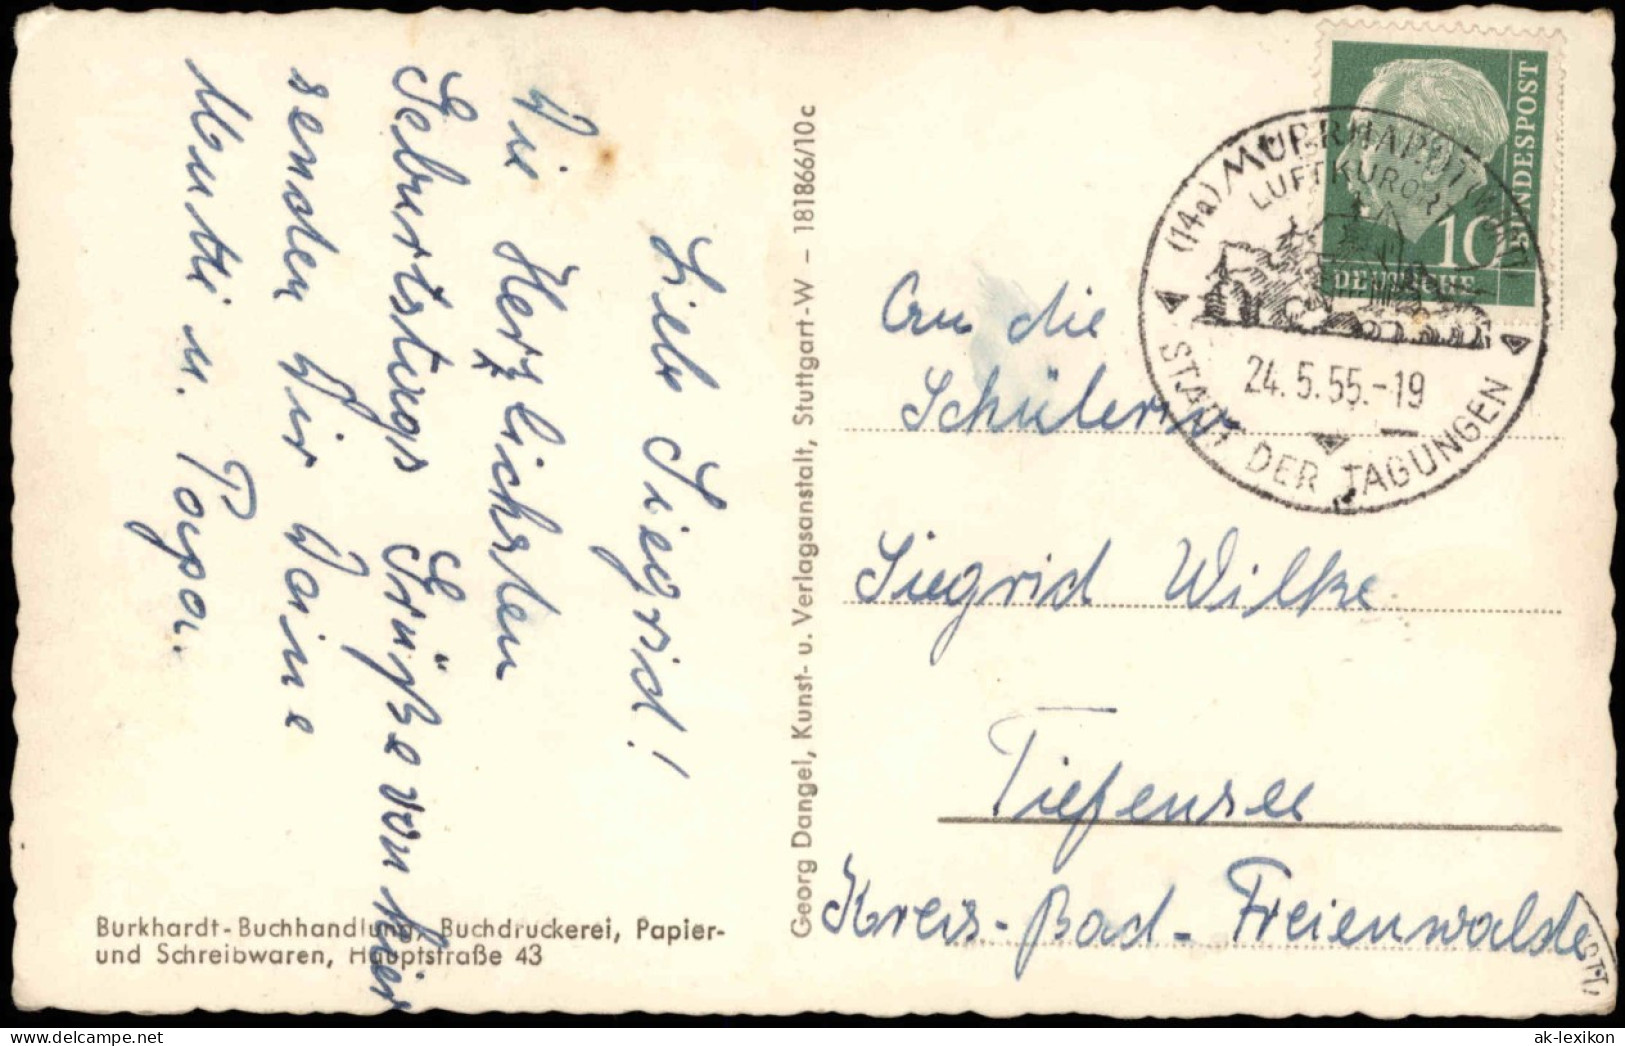 Liebe Siegrid!
Die Herzlichsten
Geburtstags Grüße von hier
senden Wir Deine
Mutti u. Papa.
Burkhardt-Buchhandlung, Buchdruckerei, Papier-
und Schreibwaren, Hauptstraße 43
Georg Dangel, Kunst- u. Verlagsanstalt, Stuttgart-W – 181866/10c
BUNDESPOST
10
DEUTSCHE
(14a) MURRHARDT (WÜRTT)
LUFTKURORT
24.5.55.-19
STADT DER TAGUNGEN
An die
Schülerin
Siegrid Wilke
Tiefensee
Kreis-Bad-Freienwalde
ak-lexikon